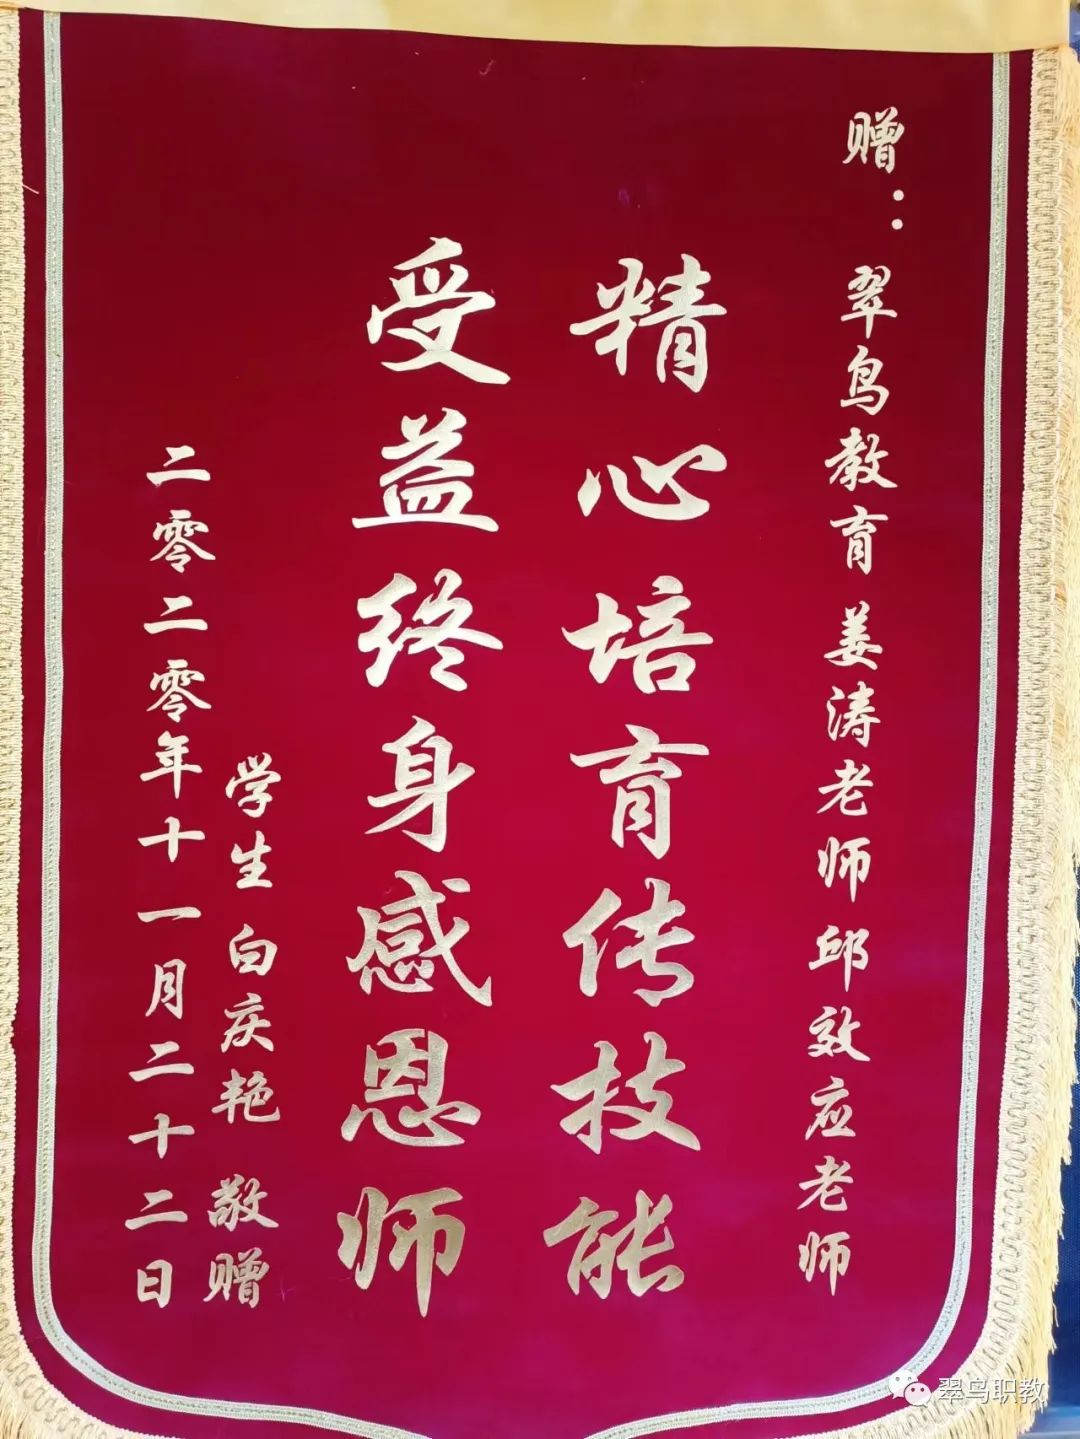 赠：翠鸟教育姜涛老师邱效应老师
精心培育传技能
受益终身感恩师
学生白庆艳 敬赠
二零二零年十一月二十二日
翠鸟职教